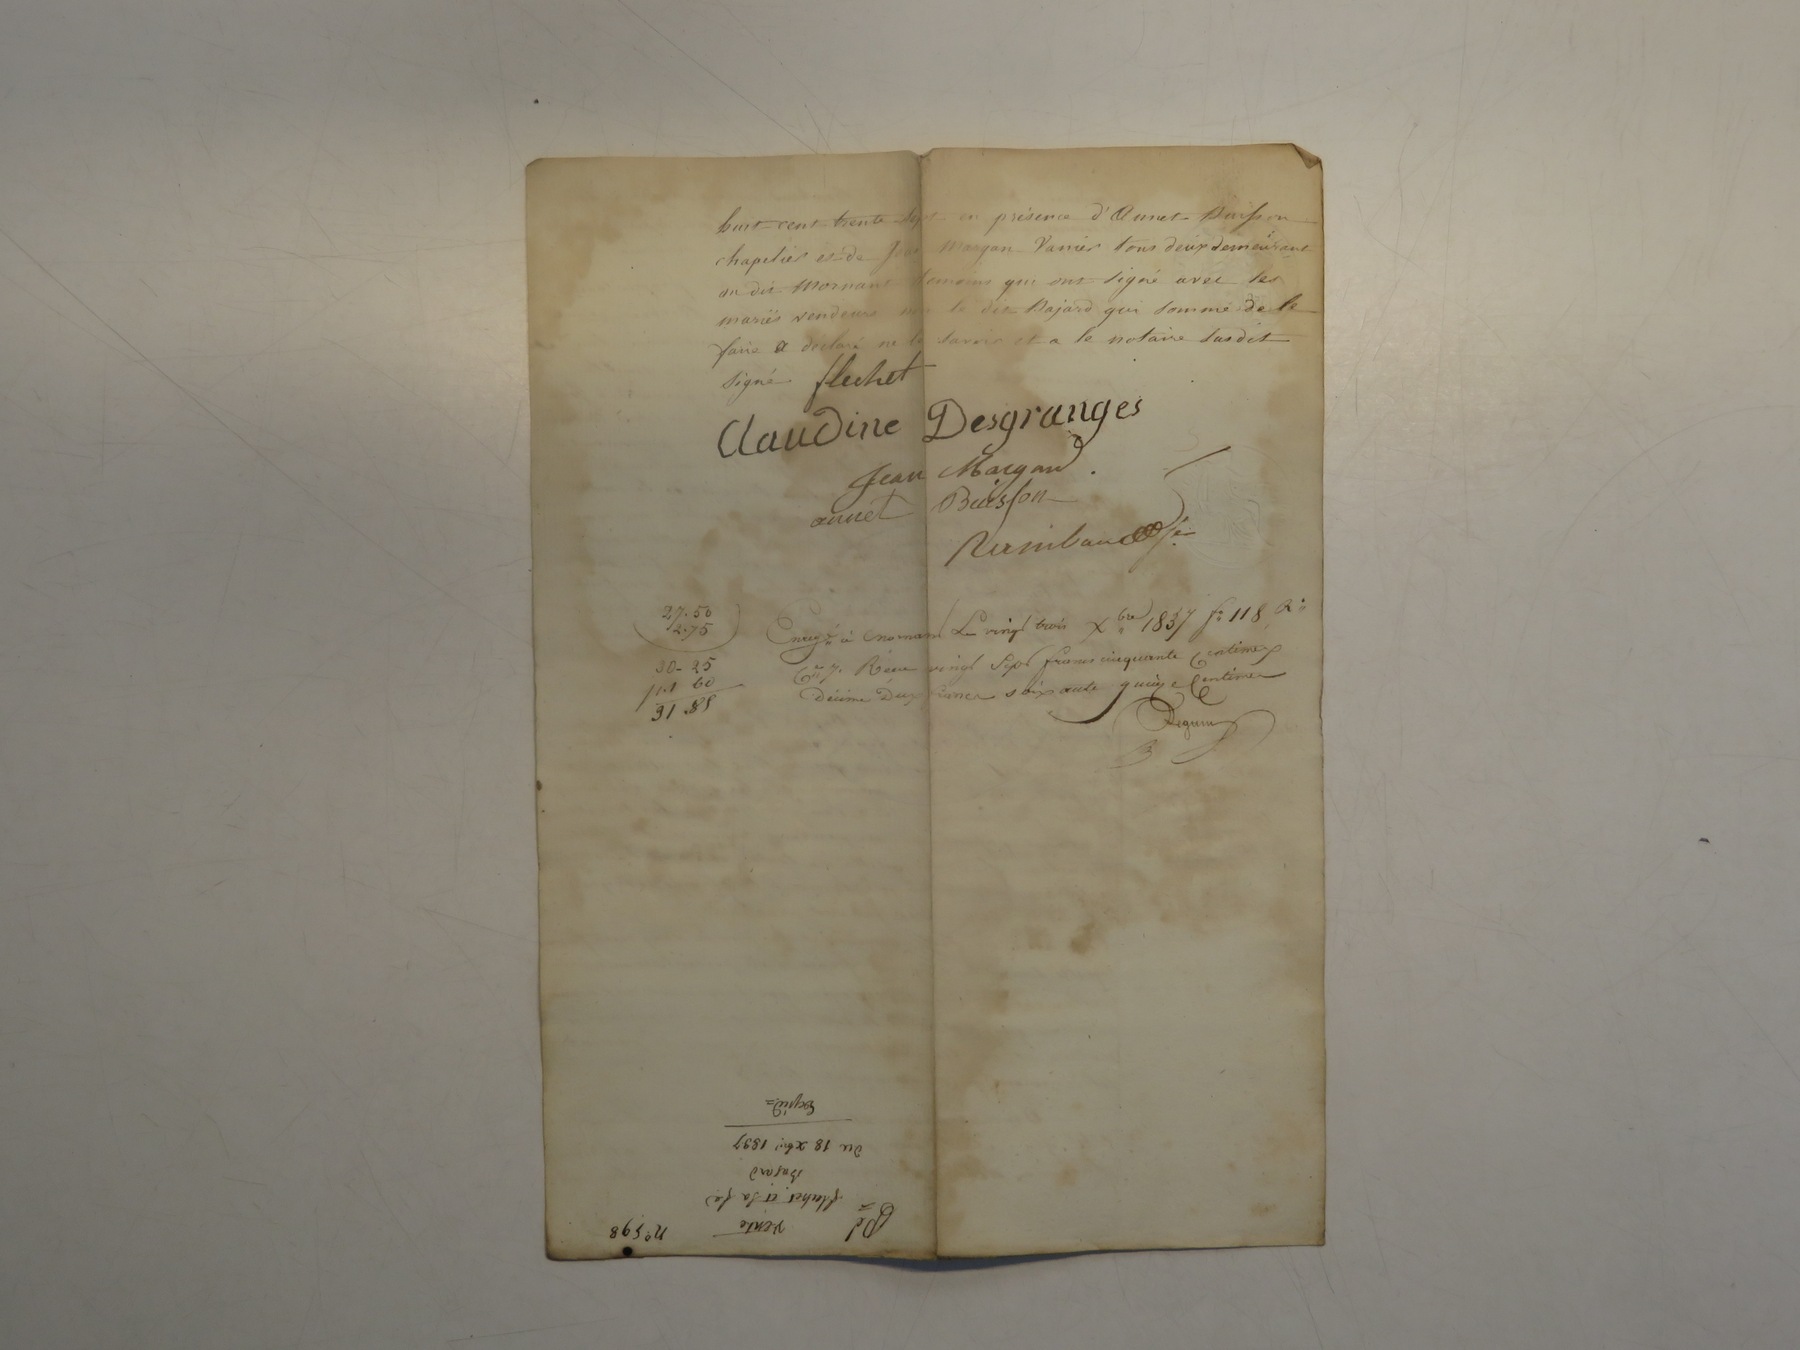 huit cent trente sept en présence d'Annet Buisson
chapelier et de Jean Margan Vanier tous deux demeurant
au dit Mornant témoins qui ont signé avec les
mariés vendeurs non le dit Bajard qui sommé de le
faire a déclaré ne le savoir et a le notaire susdit
signé flechet
Claudine Desgranges
Jean Margand
annet Buisson
27.50
2.75
30-25
1.60
31.85
Enreg.é à Mornant Le vingt trois Xbre 1837 f° 118 R°
C.es 7. Reçu vingt sept francs cinquante centimes
Décime Deux francs soixante quinze Centimes
n° 598
vente
flechet et sa fe
Bajard
du 18 xbre 1837
Expéd=